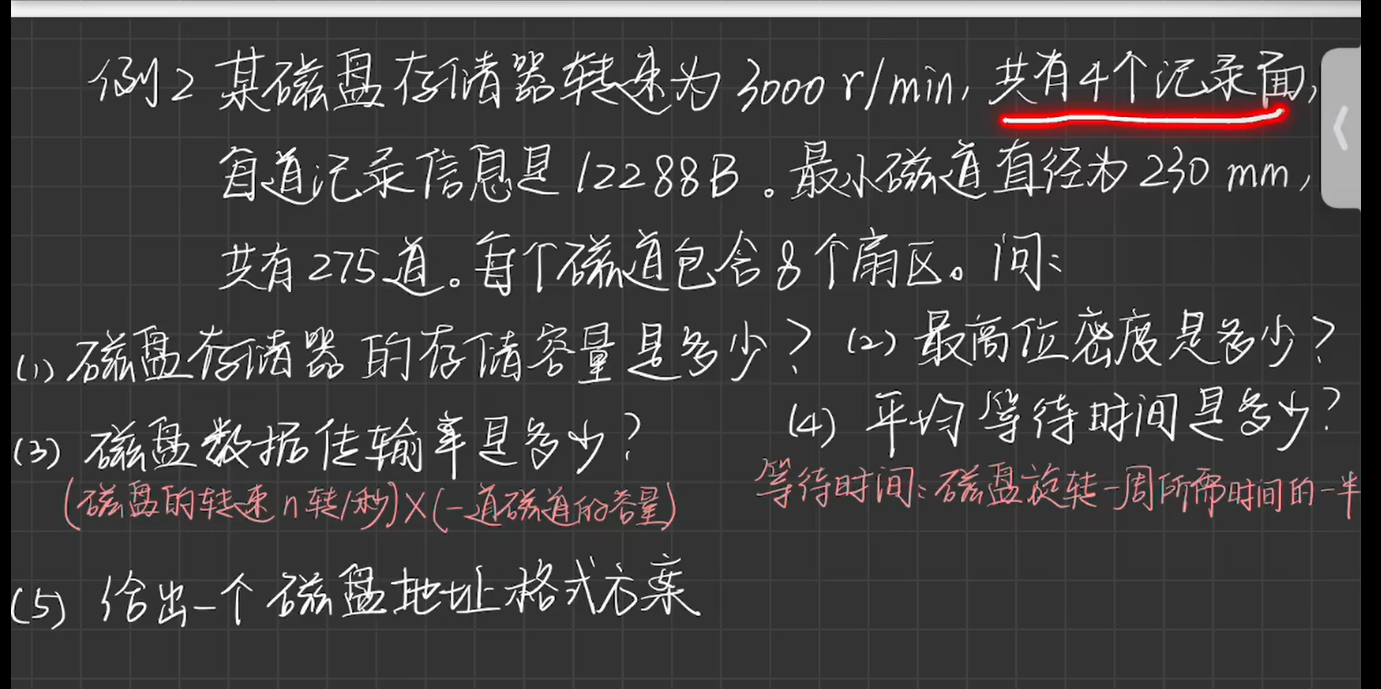 例2 某磁盘存储器转速为3000 r/min, 共有4个记录面,
每道记录信息是12288B。最小磁道直径为230 mm,
共有275道。每个磁道包含8个扇区。问:
(1) 磁盘存储器的存储容量是多少? (2) 最高位密度是多少?
(3) 磁盘数据传输率是多少? (4) 平均等待时间是多少?
(磁盘的转速n转/秒)×(一道磁道的容量) 等待时间:磁盘旋转一周所需时间的一半
(5) 给出一个磁盘地址格式方案